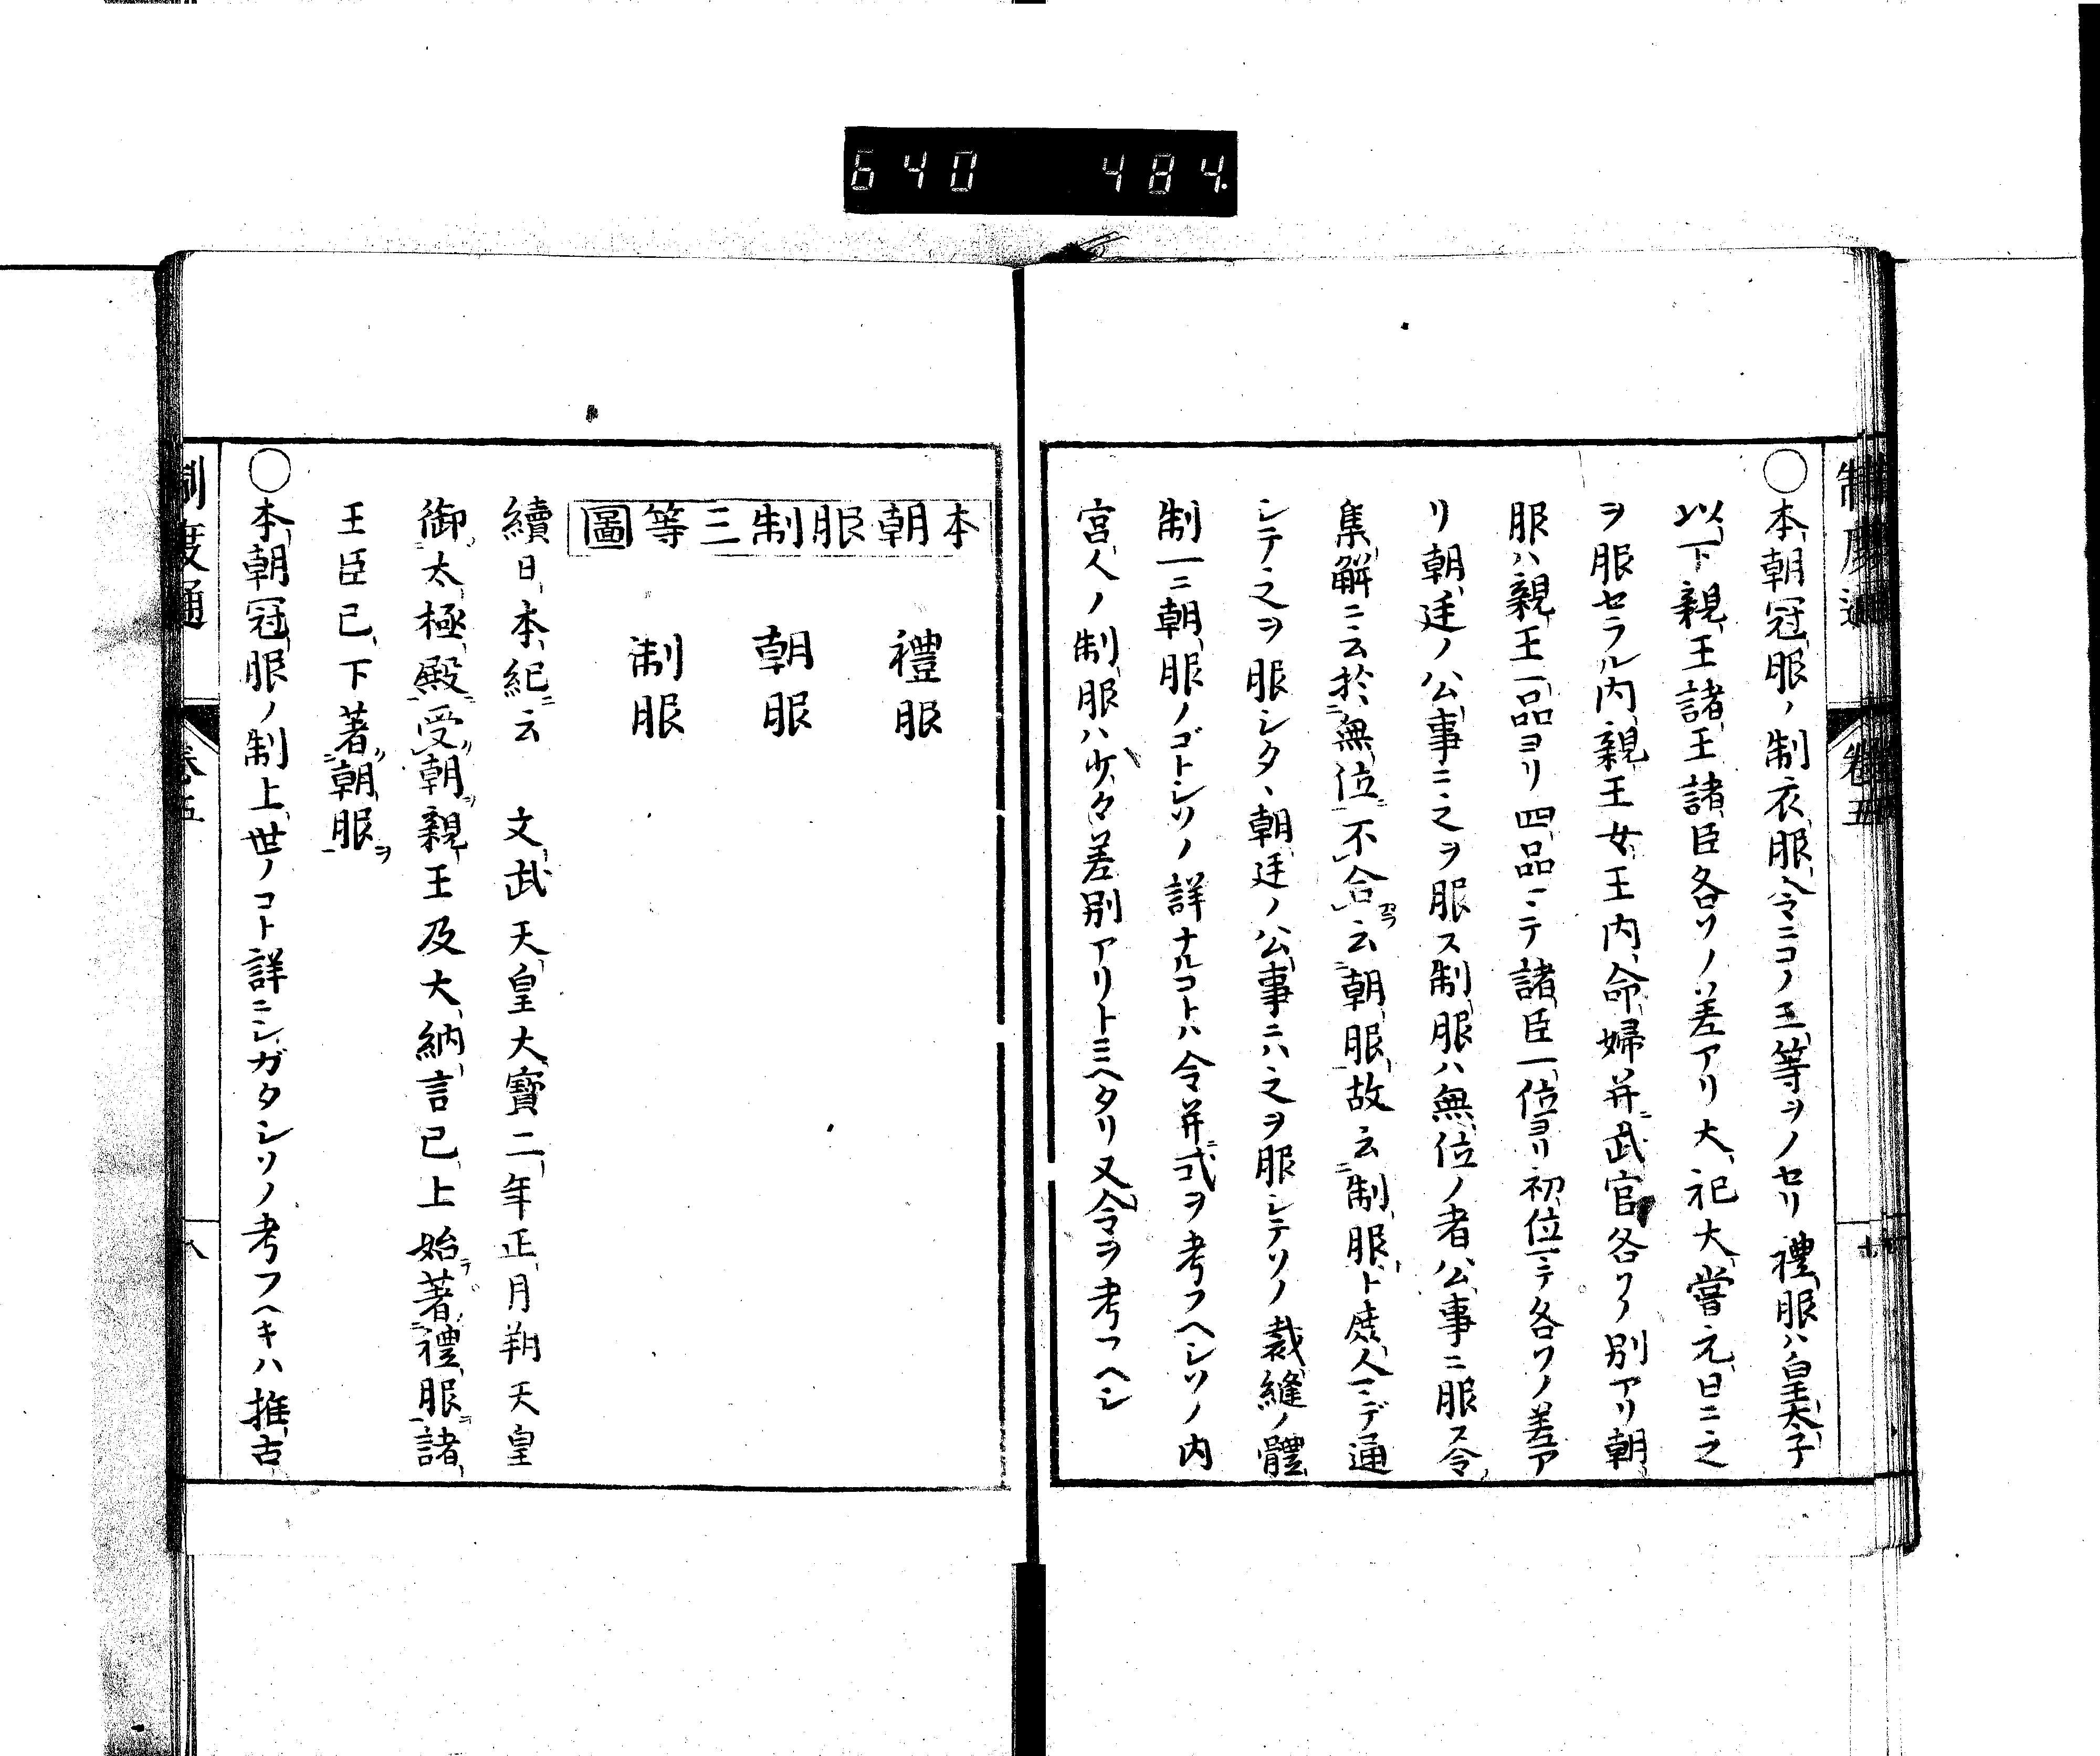 640 484.
制度通 卷五
○本朝冠服ノ制衣服令ニコノ三等ヲノセリ禮服ハ皇太子
以下親王諸王諸臣各ソノ差アリ大祀大嘗元日ニ之
ヲ服セラル内親王女王内命婦并ニ武官各ソノ別アリ朝
服ハ親王一品ヨリ四品ニテ諸臣一位ヨリ初位ニテ各ソノ差ア
リ朝廷ノ公事ニ之ヲ服ス制服ハ無位ノ者公事ニ服ス令
集解ニ云於無位不合云朝服故云制服ト庶人ニデ通
シテ之ヲ服シタヽ朝廷ノ公事ニハ之ヲ服シテソノ裁縫ノ體
制一ニ朝服ノゴトシソノ詳ナルコトハ令并ニ式ヲ考フヘシソノ内
宮人ノ制服ハ少々差別アリトミヘタリ又令ヲ考フヘシ
本朝服制三等圖
禮服
朝服
制服
續日本紀ニ云 文武天皇大寶二年正月朔天皇
御太極殿受朝親王及大納言已上始著禮服諸
王臣已下著朝服ヲ
○本朝冠服ノ制上世ノコト詳ニシガタシソノ考フヘキハ推古
制度通 卷五 八